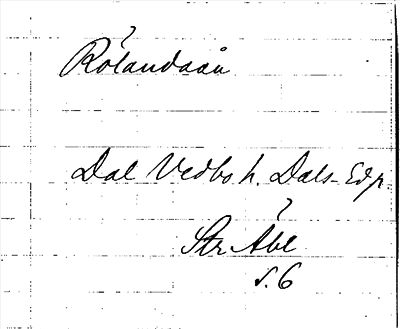 ?
Rölandaån
Dal Vedbo h. Dals-Ed p
?
Str Åbl
s. 6